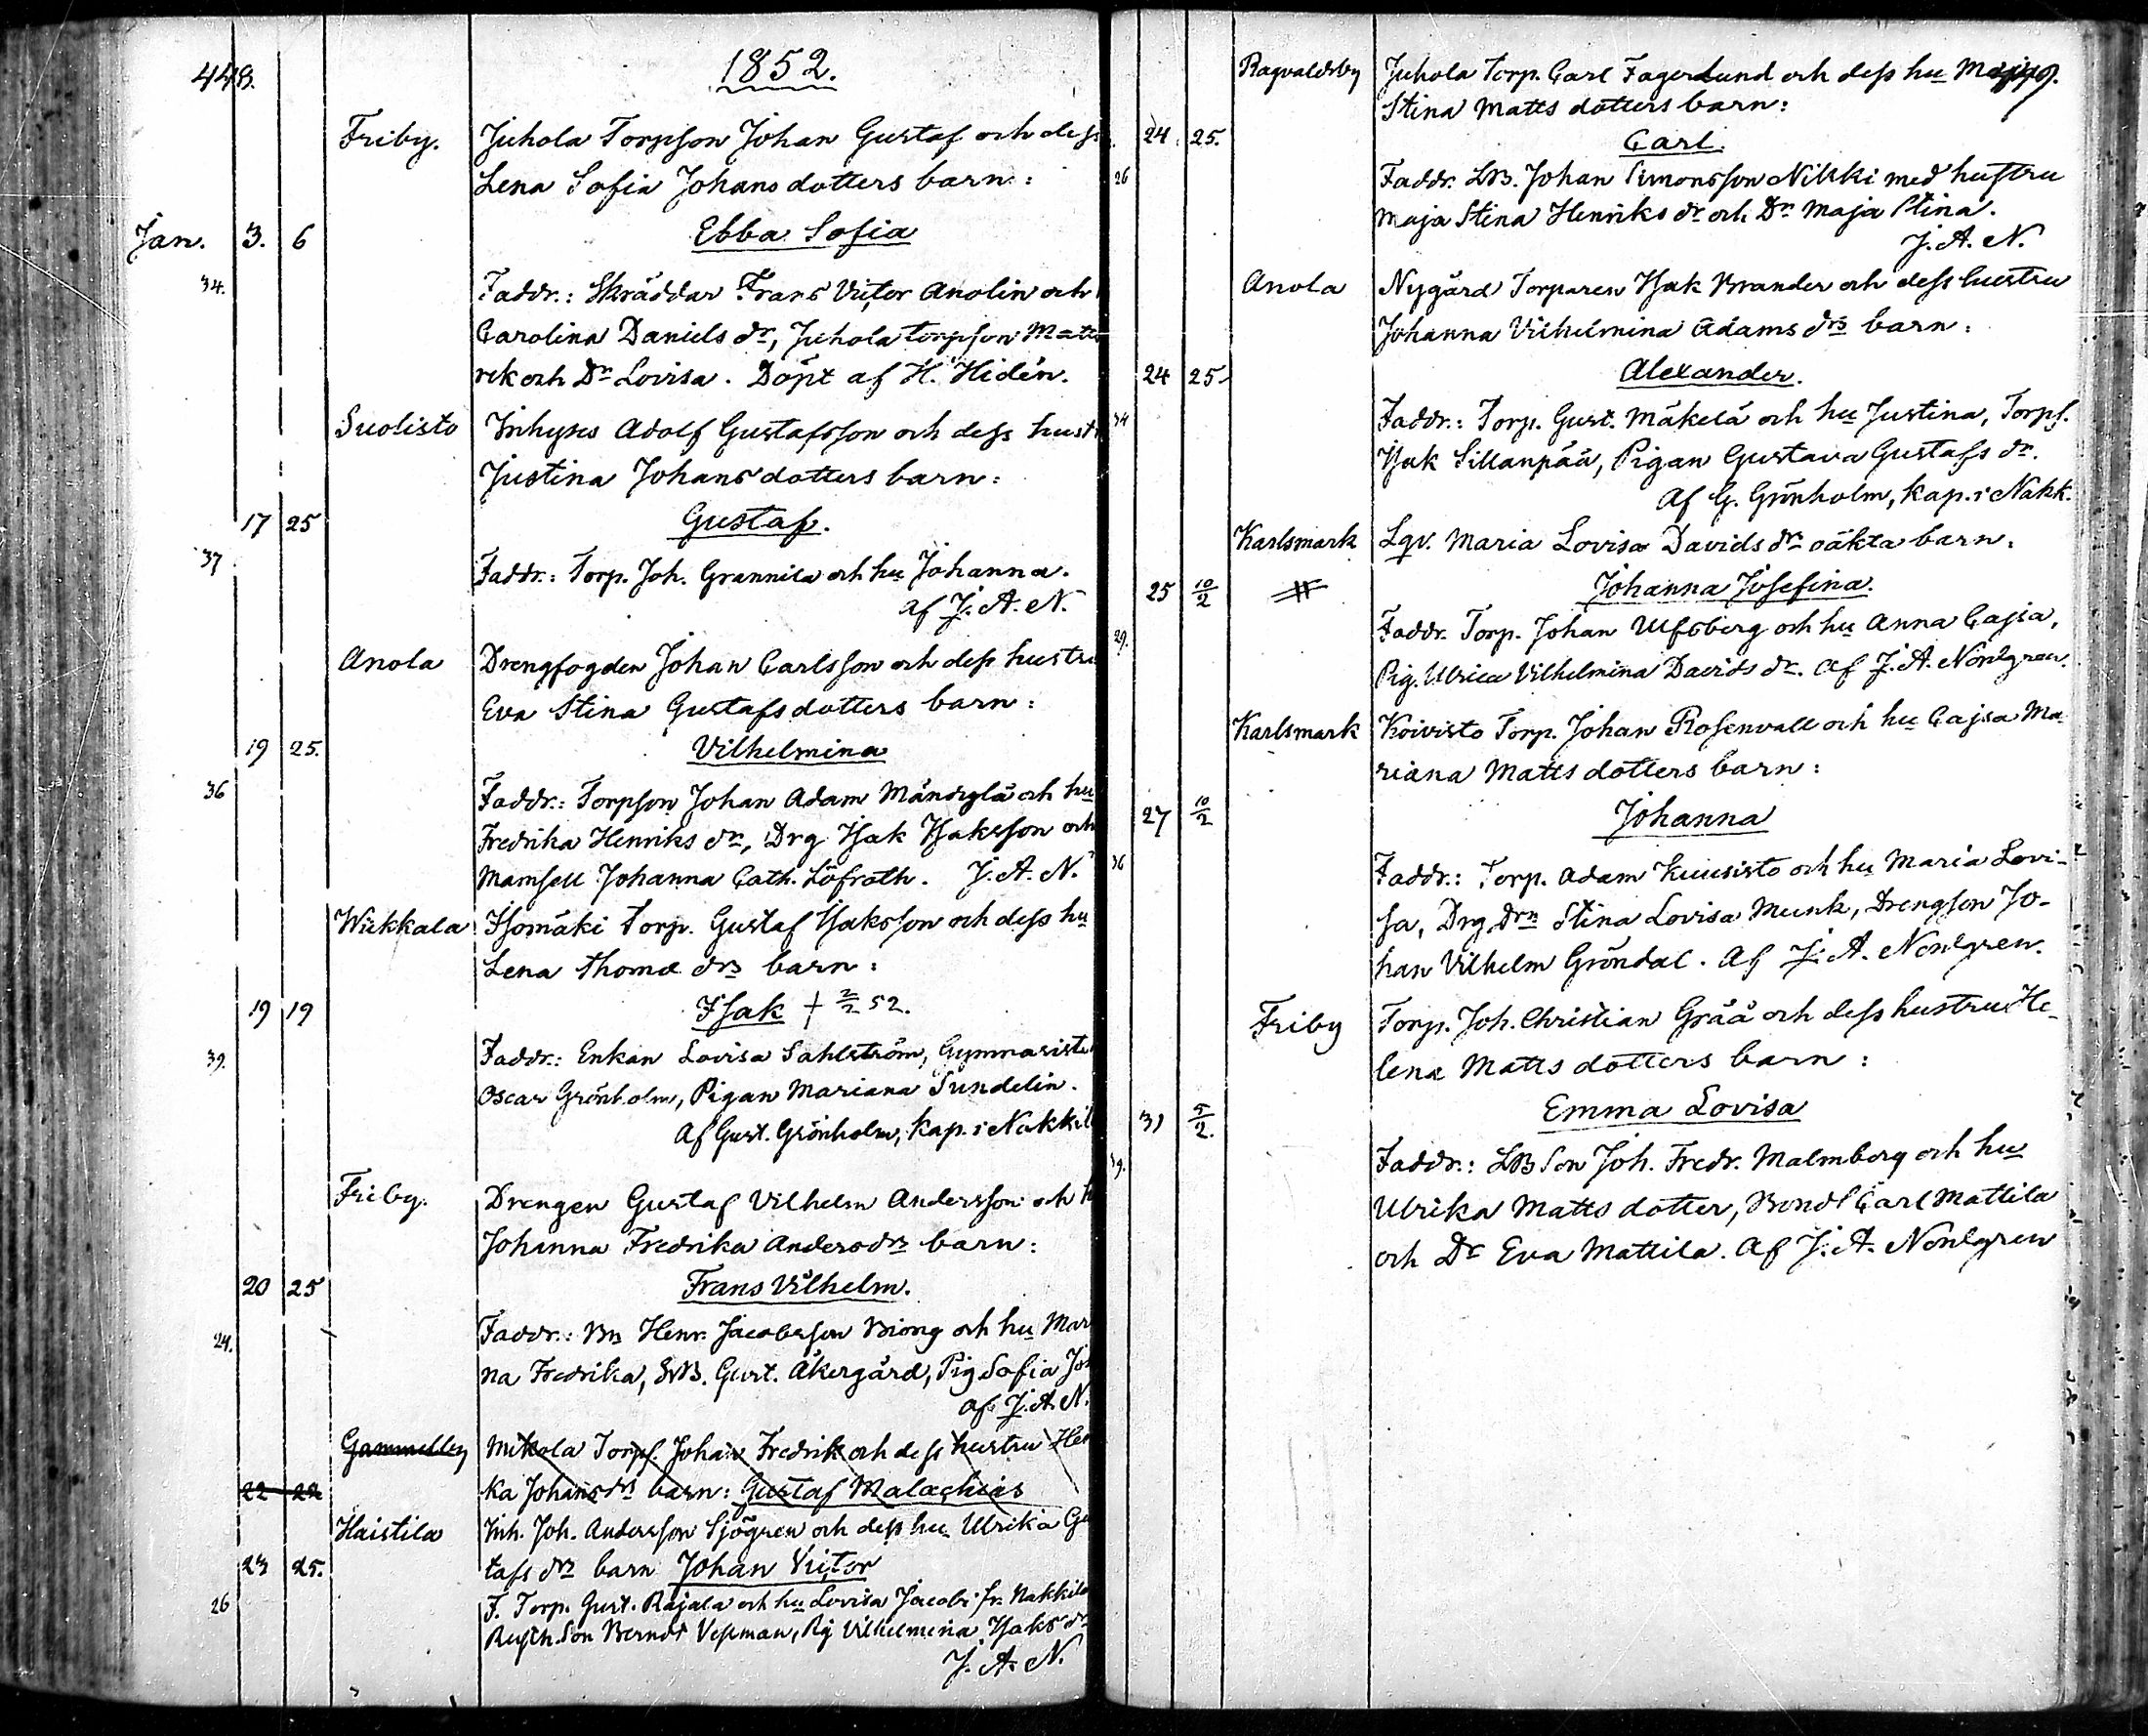 448.
1852.
Friby. Juhola Torpson Johan Gustaf och dess
Lena Sofia Johansdotters barn:
Jan. 3. 6 Ebba Sofia
34. Faddr.: Skräddar Frans Victor Anolin och
Carolina Daniels dr, Juhola torpson Matts
rek och Dr Lovisa. Döpt af H. Hidén.
Suolisto Inhyses Adolf Gustafsson och dess hust
Justina Johansdotters barn:
17 25 Gustaf.
37 Faddr.: Torp. Joh. Grannila och hu Johanna.
af J. A. N.
Anola Drengfogden Johan Carlsson och dess hustru
Eva Stina Gustafsdotters barn:
19 25. Vilhelmina
36 Faddr.: Torpson Johan Adam Mändylä och hu
Fredrika Henriks dr, Drg Isak Isaksson och
Mamsell Johanna Cath. Löfroth. J. A. N.
Wiikkala Isomäki Torp. Gustaf Isaksson och dess hu
Lena Thomæ drs barn:
19 19 Isak + 2/2 52.
39. Faddr.: Enkan Lovisa Sahlström, Gymnasisten
Oscar Grönholm, Pigan Mariana Sundelin.
Af Gust. Grönholm, kap. i Nakkil
Friby. Drengen Gustaf Vilhelm Andersson och h
Johanna Fredrika Anders drs barn:
20 25 Frans Vilhelm.
24. Faddr.: Bn Henr. Jacobsson Biong och hu Mar
na Fredrika, LB. Gust. Åkergård, Pig Sofia Joh
af J. A. N.
Gammelby Mikola Torps. Johan Fredrik och dess hustru Hen
22 22 ka Johans drs barn: Gustaf Malachias
Haistila Inh. Joh. Andersson Sjögren och dess hu Ulrika Gu
23 25. tafs drs barn Johan Victor
26 F. Torp. Gust. Rajala och hu Lovisa Jacobs fr. Nakkila
Rusth. Son Berndt Vessman, Pig Vilhelmina Isaks dr
J. A. N.
Ragvaldsby Juhola Torp. Carl Fagerlund och dess hu Maja
Stina Matts dotters barn:
24 25. Carl.
26 Faddr. LB. Johan Simonsson Nikki med hustru
Maja Stina Henriks dr och Dr Maja Stina.
J. A. N.
Anola Nygård Torparen Isak Brander och dess hustru
Johanna Vilhelmina Adams drs barn:
24 25. Alexander.
34 Faddr.: Torp. Gust. Mäkelä och hu Justina, Torps.
Isak Sillanpää, Pigan Gustava Gustafs dr.
Af G. Grönholm, kap. i Nakk.
Karlsmark Lqv. Maria Lovisa Davids drs oäkta barn.
25 10/2 # Johanna Josefina.
29. Faddr. Torp. Johan Ulfsberg och hu Anna Cajsa,
Pig. Ulrica Vilhelmina Davids dr. Af J. A. Nordgren.
Karlsmark Koivisto Torp. Johan Rosenvall och hu Cajsa Ma
riana Matts dotters barn:
27 10/2 Johanna
36 Faddr.: Torp. Adam Kuusisto och hu Maria Lovi-
sa, Drg Drn Stina Lovisa Munk, Drengson Jo-
han Vilhelm Gröndal. Af J. A. Nordgren.
Friby Torp. Joh. Christian Grää och dess hustru He-
lena Matts dotters barn:
31 5/2. Emma Lovisa
39. Faddr.: LB Son Joh. Fredr. Malmberg och hu
Ulrika Matts dotter, Bonds. Carl Mattila
och Dr Eva Mattila. Af J. A. Nordgren